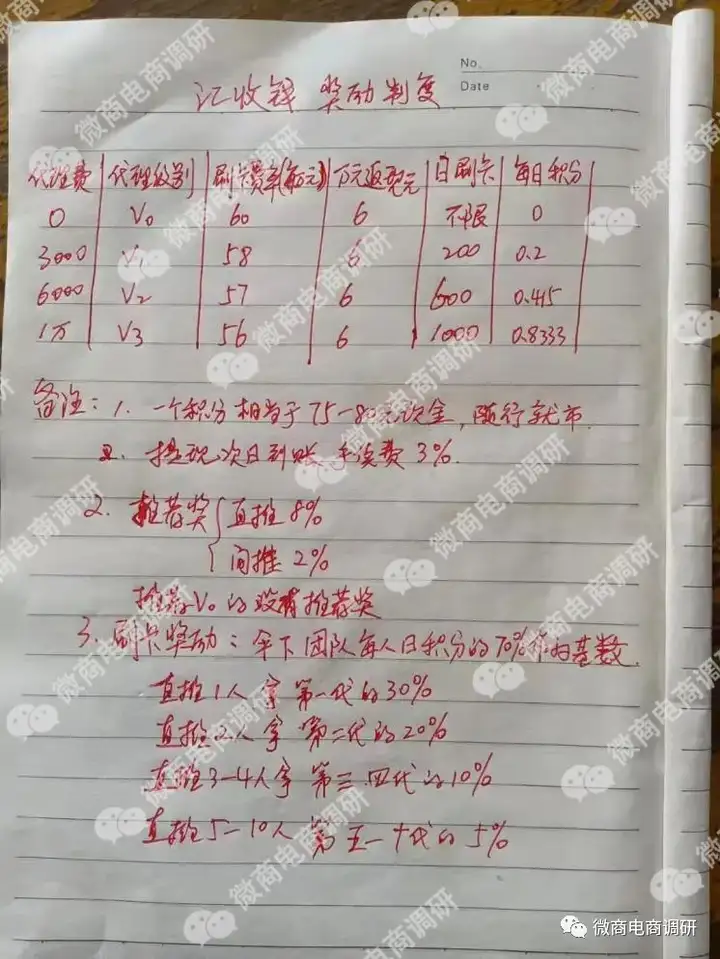 No.
Date
汇收钱 奖励制度
代理费 代理级别 刷卡费率(每万元) 万元返现元 日刷卡 每日积分
0 V0 60 6 不限 0
3000 V1 58 6 200 0.2
6000 V2 57 6 600 0.415
1万 V3 56 6 1000 0.8333
备注: 1. 一个积分相当于75-80元现金, 随行就市.
提现次日到账 手续费 3%.
2. 推荐奖 { 直推 8%
间推 2%
推荐V0的没有推荐奖
3. 刷卡奖励: 伞下团队每人日积分的70%作为基数.
直推1人拿 第一代的30%
直推2人拿 第二代的20%
直推3-4人拿 第三.四代的10%
直推5-10人 第五-十代的5%
微商电商调研